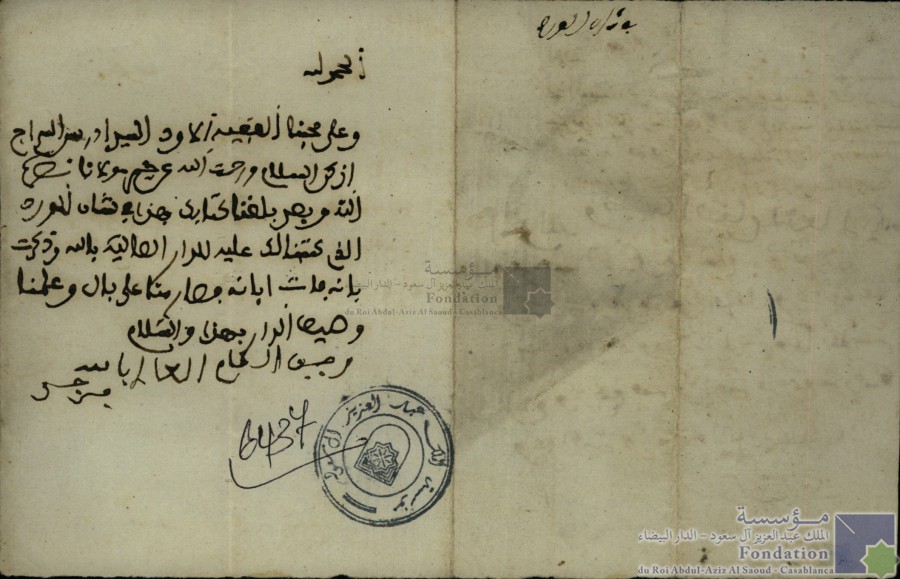 الحمد لله
وعلى محبنا الفقيه الاود السيد ادريس السراج
ازكى السلام ورحمت الله عن خير مولانا نصره
الله وبعد بلغنا كتابك بهذا في شأن
الذي كتبنا لك عليه للدار العالية بالله وذكرت
بانه بات ابانه وصار منا على بال وعلمنا
الدار بهذا والسلام
المقام العالي بالله
6437
مؤسسة الملك عبد العزيز آل سعود
مؤسسة
الملك عبد العزيز آل سعود – الدار البيضاء
Fondation
du Roi Abdul-Aziz Al Saoud - Casablanca
مؤسسة
الملك عبد العزيز آل سعود – الدار البيضاء
Fondation
du Roi Abdul-Aziz Al Saoud - Casablanca